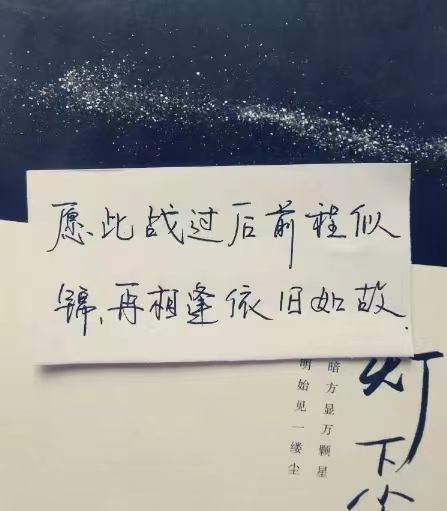 愿此战过后前程似
锦,再相逢依旧如故.
灯下
暗方显万颗星
明始见一缕尘